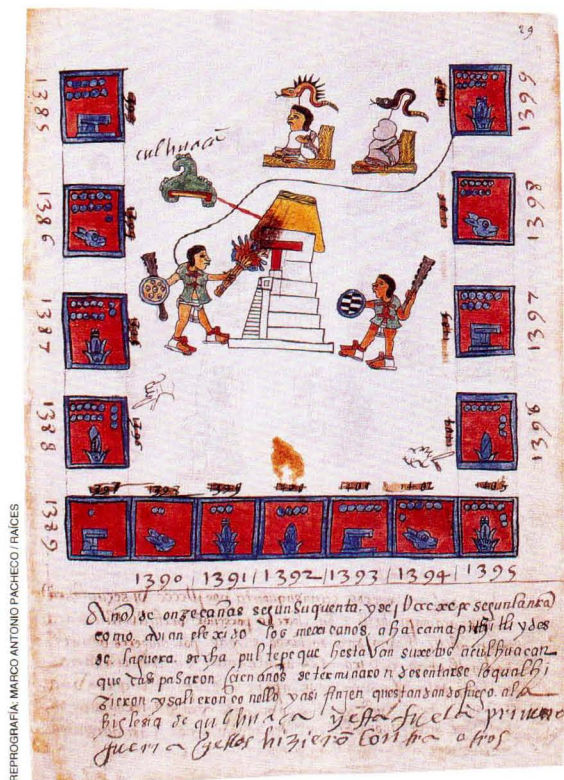 29
1385
1386
1387
1388
1389
culhuacā
1399
1398
1397
1396
1390 | 1391 | 1392 | 1393 | 1394 | 1395
Año de onze cañas segun su quenta y de segun la nra
como avian elexido los mexicanos a hacamapichtli y des
de la guerra de chapultepeque hestavan suxetos a culhuacan
que ras pasaron cien anos determinaron desentarse lo qual hi
zieron y salieron co nello y asi finjen questan dando fuego al a
yglesia de culhuaca y esta fue la primera
guerra q ellos hizierō contra otros
REPROGRAFÍA: MARCO ANTONIO PACHECO / RAÍCES